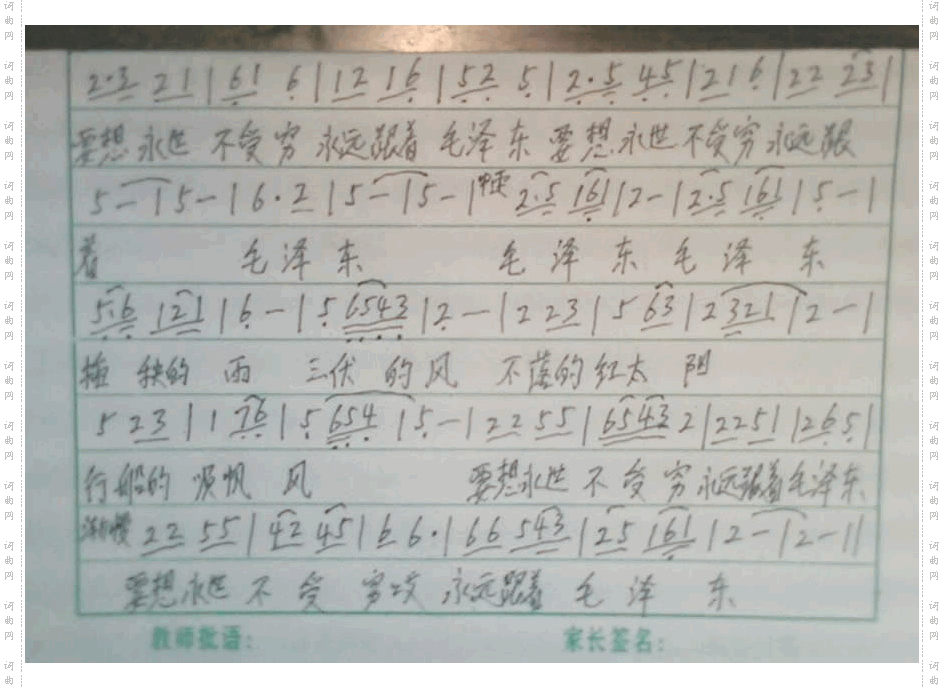 2·3 21 | 61 6 | 12 16 | 52 5 | 2·5 45 | 21 6 | 22 23 |
要想永世 不受穷 永远跟着 毛泽东 要想永世不受穷永远跟
5 — | 5 — | 6·2 | 5 — | 5 — | 2·5 161 | 2 — | 2·5 161 | 5 — |
着 毛泽东 毛泽东 毛泽东
5·6 121 | 6 — | 5 6543 | 2 — | 2 23 | 5 63 | 2 321 | 2 — |
插秧的雨 三伏的风 不落的红太阳
5 23 | 1 76 | 5 654 | 5 — | 22 55 | 6543 2 | 22 51 | 265 |
行船的 顺帆风 要想永世不受穷永远跟着毛泽东
渐慢 22 55 | 42 45 | 6 6· | 66 543 | 25 161 | 2 — | 2 — ||
要想永世不受穷 永远跟着 毛泽东
教师批语:
家长签名:
词曲网